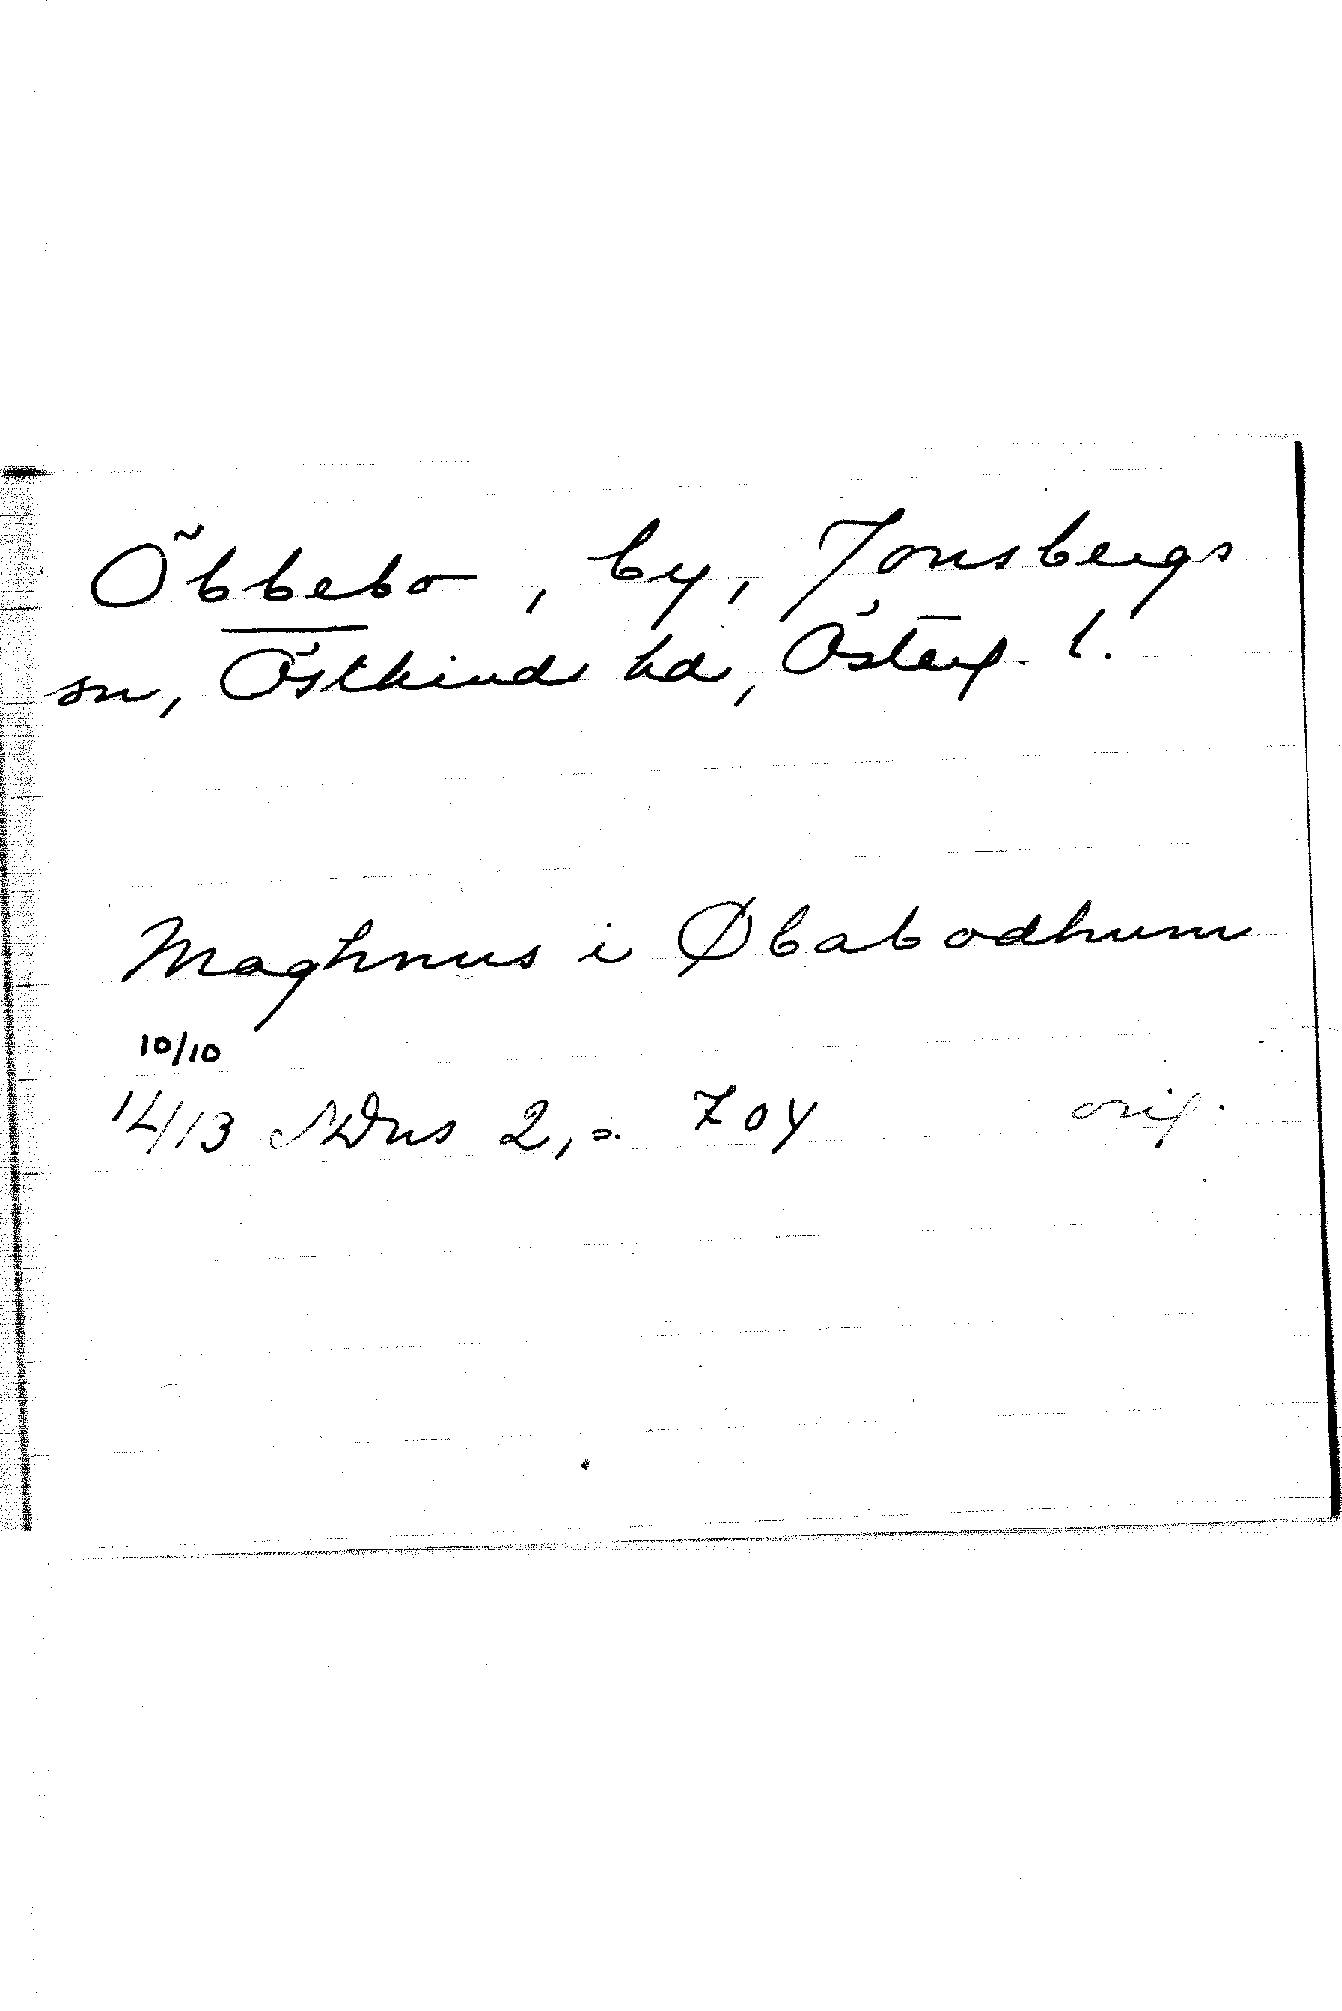 Öbbebo, by, Jonsbergs
sn, Östkinds hd, Österg. l.
Maghnus i Øbabodhum
10/10
14/13 SDns 2, s. 704 orig.